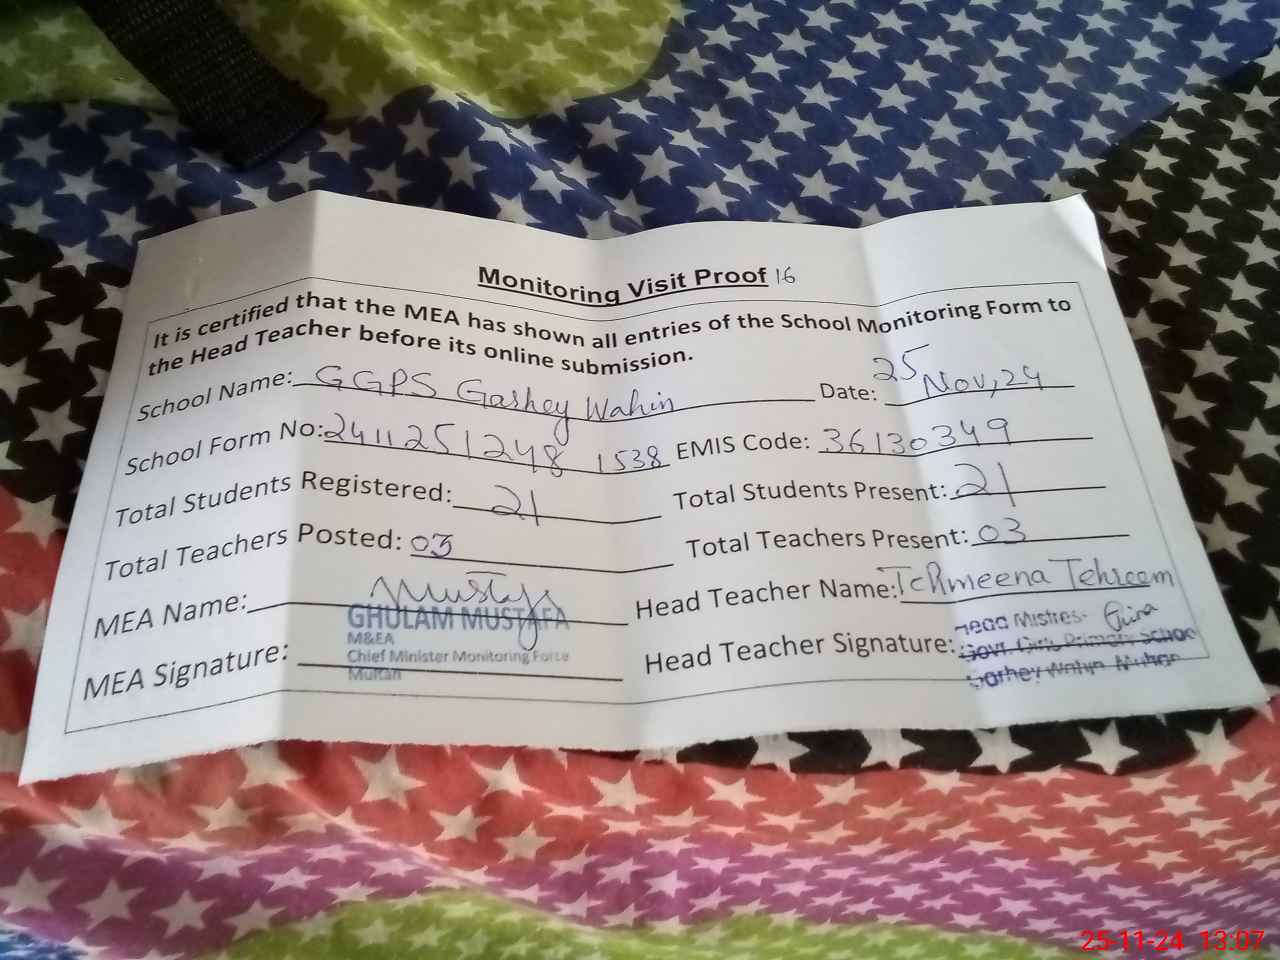 Monitoring Visit Proof 16
It is certified that the MEA has shown all entries of the School Monitoring Form to
the Head Teacher before its online submission.
School Name: GGPS Garhey Wahin Date: 25 Nov, 24
School Form No: 2411251248 1538 EMIS Code: 36130349
Total Students Registered: 21 Total Students Present: 21
Total Teachers Posted: 03 Total Teachers Present: 03
MEA Name: Mustafa Head Teacher Name: Tehmeena Tehreem
GHULAM MUSTAFA
M&EA
Chief Minister Monitoring Force
Multan
MEA Signature: Head Teacher Signature:
Head Mistres
Govt. Girls Primary School
Garhey Wahin Multan
25-11-24 13:07